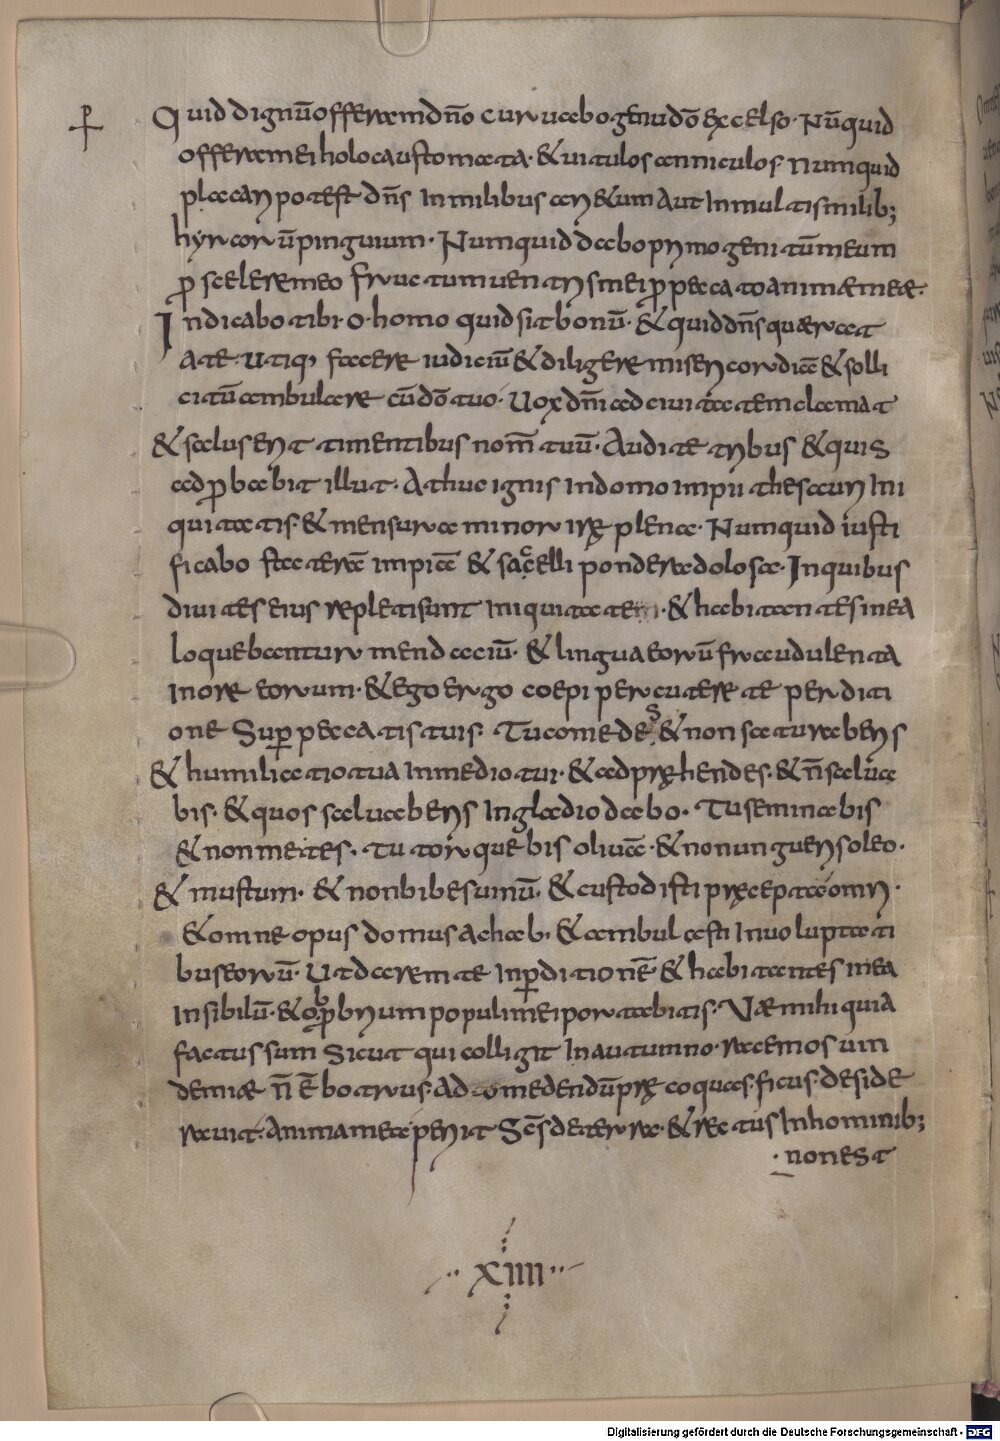 Quid dignū offeram dn̄o curuabo genu dō excelso. Nūquid
offeram ei holocaustomata. & uitulos anniculos. Numquid
placari potest dn̄s In milibus ari&um Aut In multis milib;
hyrcorū pinguium. Numquid dabo primogenitū meum
ꝓ scelere meo fructum uentris mei ꝓ peccato animæ meæ.
Indicabo tibi. O. homo quid sit bonū. & quid dn̄s quærat
a te. Utiq, facere iudiciū & diligere misericordiā & solli
citū ambulare cū dō tuo. Uox dn̄i ad ciuitatem clamat
& salus erit timentibus nom̄ tuū. Audite tribus & quis
adꝓbabit illut. Athuc ignis In domo impii thesauri Ini
quitatis. & mensura minor iræ plena. Numquid iusti
ficabo staterā impiā & saccelli pondera dolosa. In quibus
diuites eius repleti sunt Iniquitate. & habitantes In ea
loquebantur mendaciū. & lingua eorū fraudulenta
In ore eorum. & ego ergo coepi percutere te perditi
one Suꝑ peccatis tuis. Tu comedes & non saturaberis
& humiliatio tua In medio tui. & adpręhendes. & n̄ salua
bis. & quos saluaberis In gladio dabo. Tu seminabis
& non metes. Tu torquebis oliuā. & non ungueris oleo.
& mustum. & non bibes uinū. & custodisti pręcepta omri.
& omne opus domus achab. & ambulasti In uoluptati
bus eorū. Ut darem te In ꝑditionē & habitantes In ea
In sibilū. & obꝓbrium populi mei portabitis. Væ mihi quia
factus sum Sicut qui colligit In autumno racemos uin
demiæ n̄ ē botrus. Ad comedendū pręcoquas. ficus. deside
rauit. Anima mea periit Sc̄s de terra. & rectus In hominib;
. non est
.. xiiii ..